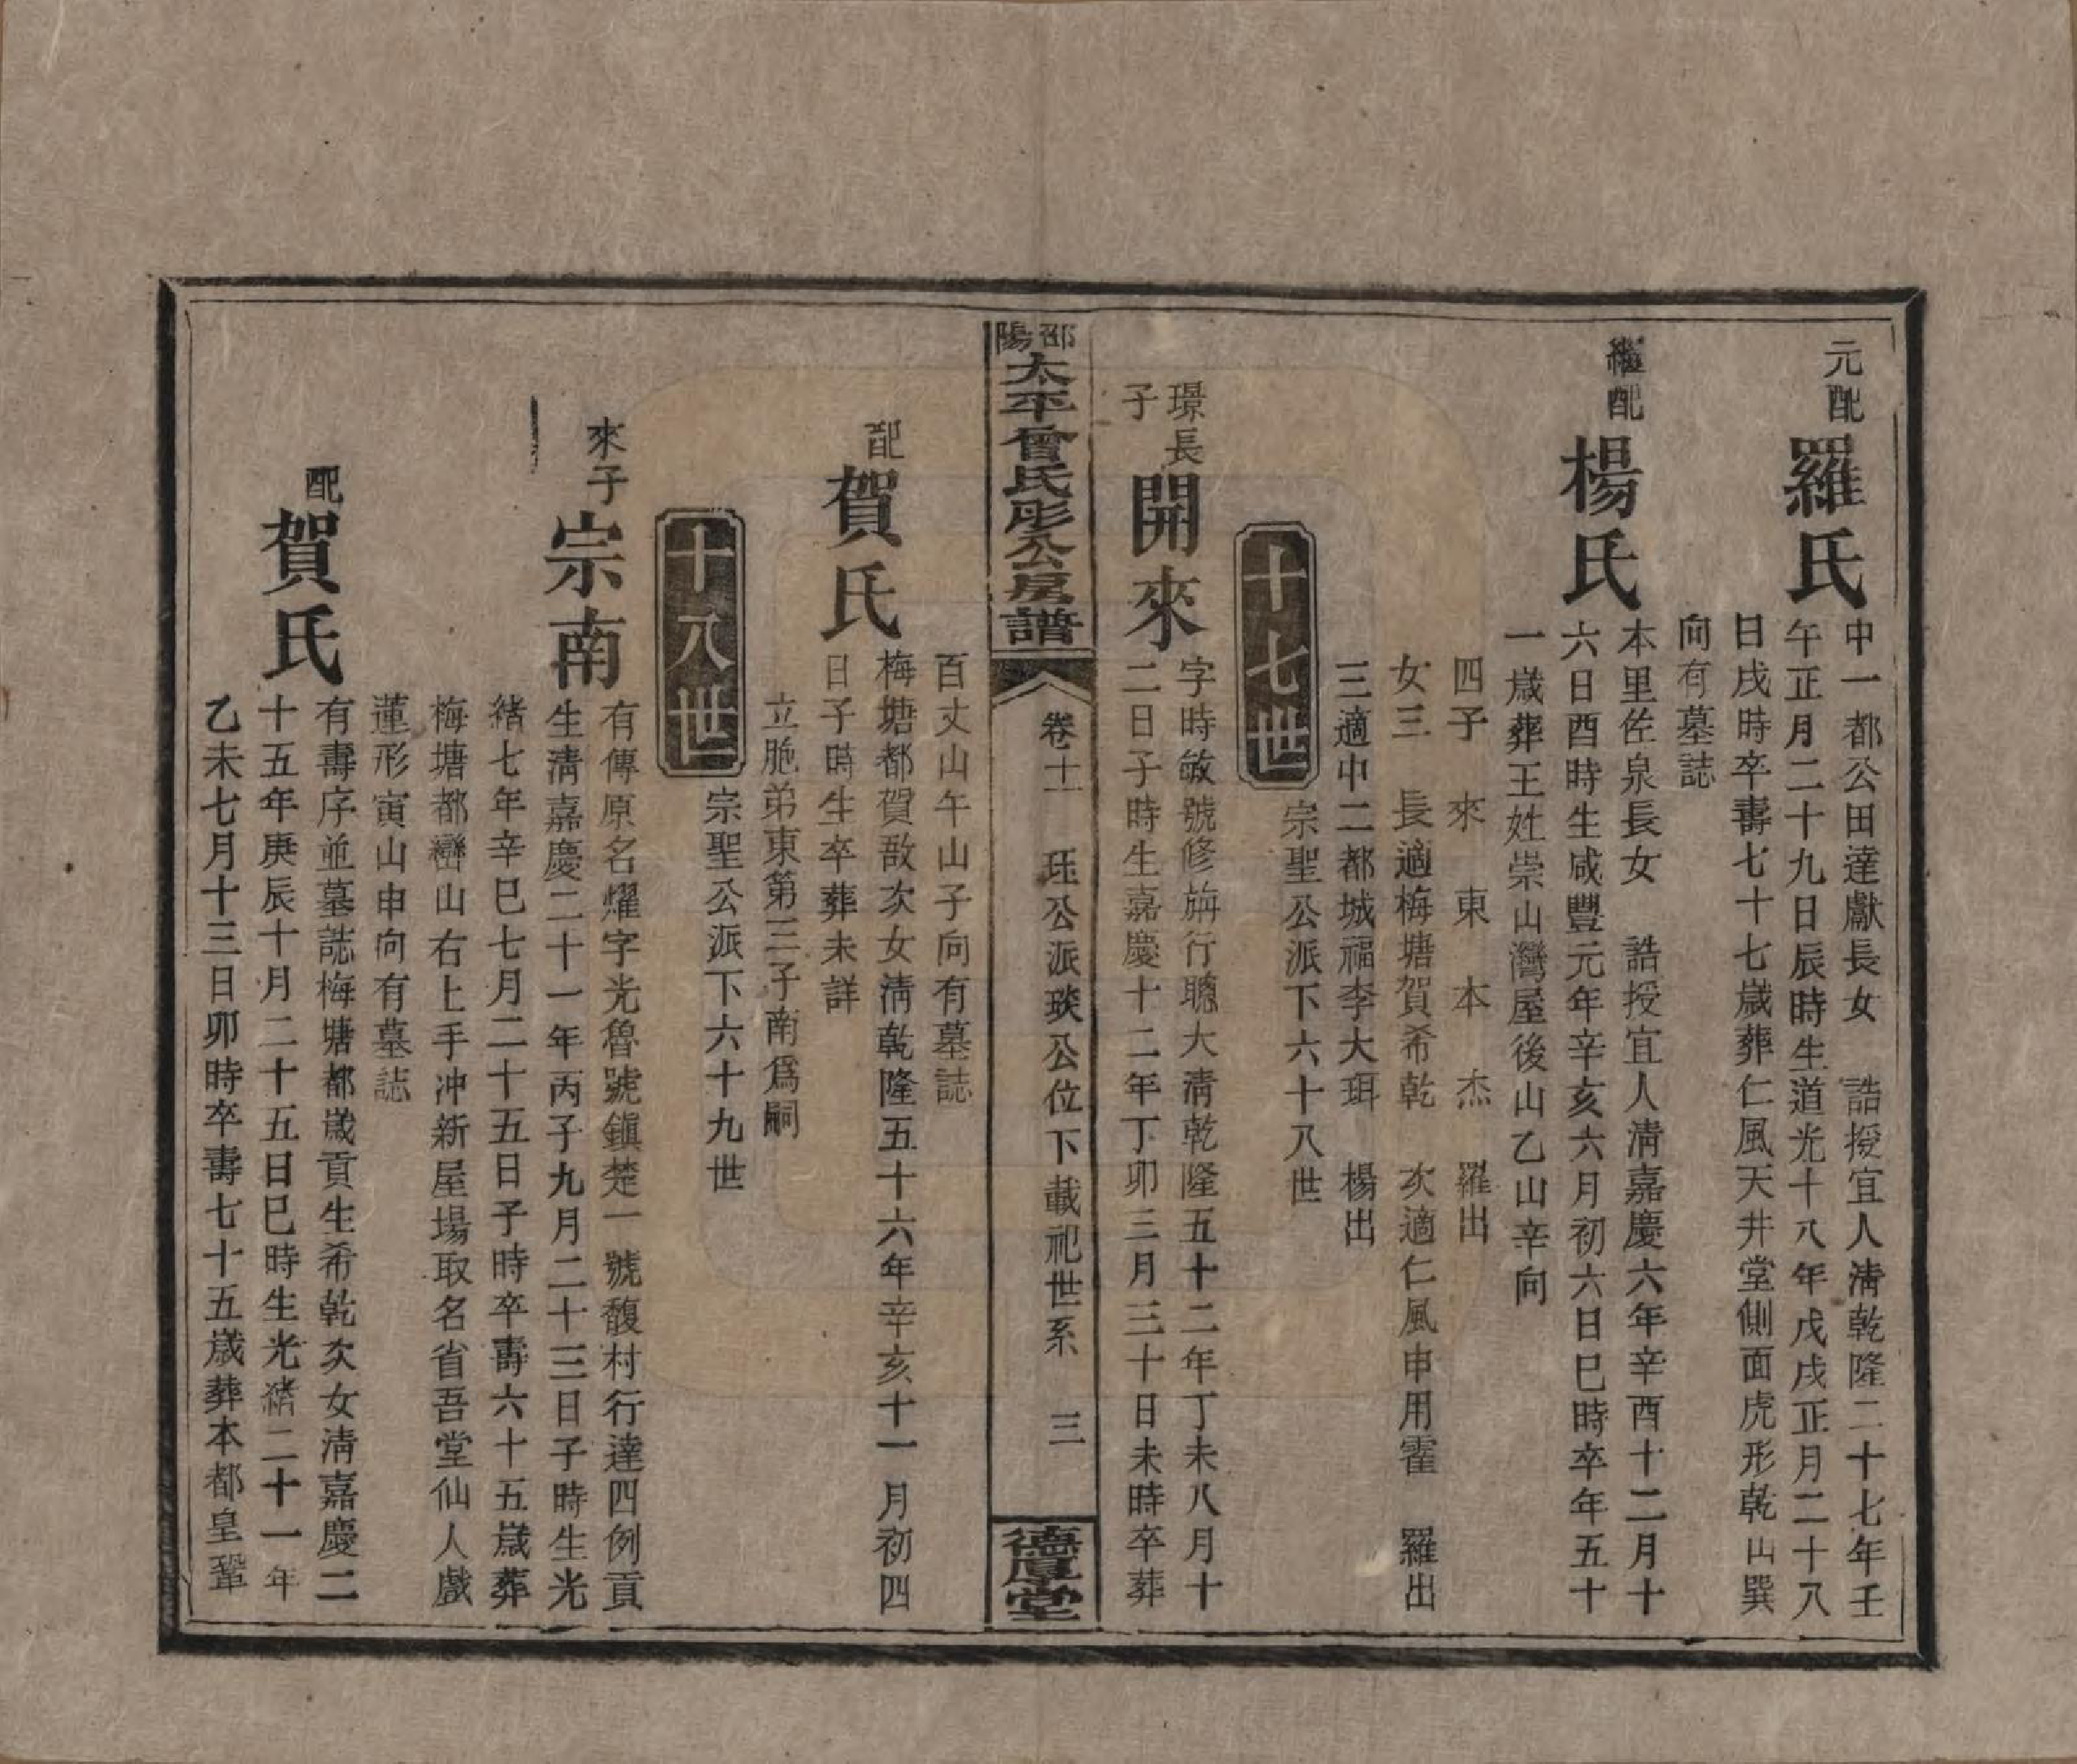 元配
羅氏
中一都公田達獻長女　誥授宜人清乾隆二十七年壬
午正月二十九日辰時生道光十八年戊戌正月二十八
日戌時卒壽七十七歲葬仁風天井堂側面虎形乾山巽
向有墓誌
繼配
楊氏
本里佐泉長女　誥授宜人清嘉慶六年辛酉十二月十
六日酉時生咸豐元年辛亥六月初六日巳時卒年五十
一歲葬王姓崇山灣屋後山乙山辛向
四子　來　東　本　杰　羅出
女三　長適梅塘賀希乾　次適仁風申用霍　羅出
三適中二都城福李大珥　楊出
宗聖公派下六十八世
十七世
璟長
子
開來
字時敏號修旃行聰大清乾隆五十二年丁未八月十
二日子時生嘉慶十二年丁卯三月三十日未時卒葬
邵陽
太平曾氏彤公房譜
卷十一　珏公派琰公位下載祀世系　三
德厚堂
百丈山午山子向有墓誌
配
賀氏
梅塘都賀敔次女清乾隆五十六年辛亥十一月初四
日子時生卒葬未詳
立胞弟東第三子南爲嗣
宗聖公派下六十九世
十八世
來子
宗南
有傳原名燿字光魯號鎮楚一號馥村行達四例貢
生清嘉慶二十一年丙子九月二十三日子時生光
緒七年辛巳七月二十五日子時卒壽六十五歲葬
梅塘都巒山右上手冲新屋場取名省吾堂仙人戲
蓮形寅山申向有墓誌
配
賀氏
有壽序並墓誌梅塘都歲貢生希乾次女清嘉慶二
十五年庚辰十月二十五日巳時生光緒二十一年
乙未七月十三日卯時卒壽七十五歲葬本都皇鞏